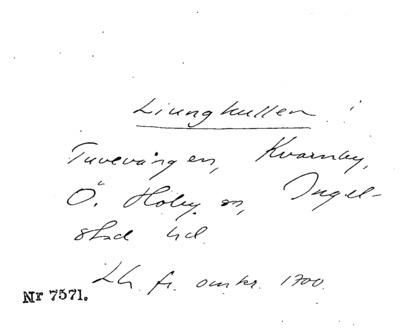 Liungkullen i
Tuvevången, Kvarnby,
Ö. Hoby sn, Ingel-
stad hd.
Lh. fr. omkr. 1700.
Nr 7571.